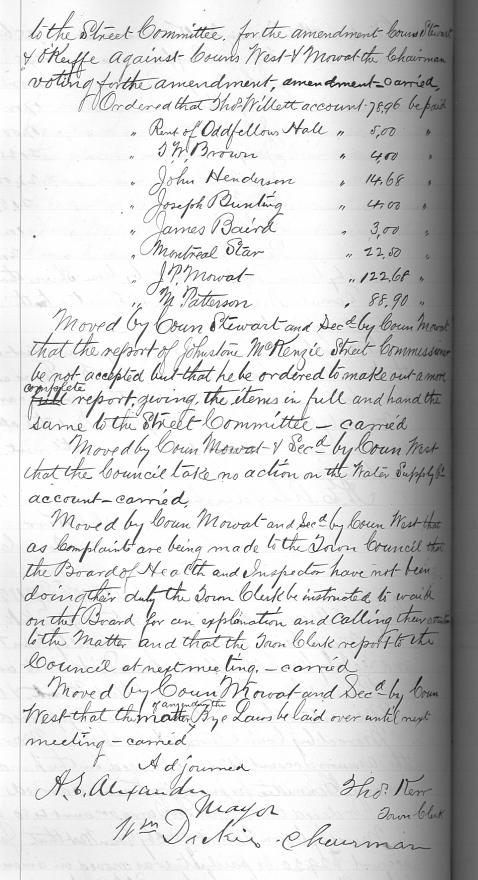 to the Street Committee, for the amendment Couns Stewart
& O'Keiffe against Couns West & Mowat the Chairman
voting for the amendment, amendment carried,
Ordered that Thos Willett account 78,96 be paid
" Rent of Oddfellows Hall " 5,00 "
" T. W. Brown " 4,00 "
" John Henderson " 14.68 "
" Joseph Bunting " 4.00 "
" James Baird " 3,00 "
" Montreal Star " 22,50 "
" J. P. Mowat " 122.68 "
" M. Patterson " 88,90 "
Moved by Coun Stewart and Secd by Coun Mowat
that the report of Johnstone McKenzie Street Commissioner
be not accepted but that he be ordered to make out a more
complete
full report, giving the items in full and hand the
same to the Street Committee – carried
Moved by Coun Mowat & Secd by Coun West
that the Council take no action on the Water Supply Co
account – carried,
Moved by Coun Mowat and Secd by Coun West that
as Complaints are being made to the Town Council that
the Board of Health and Inspector have not been
doing their duty the Town Clerk be instructed to wait
on the Board for an explanation and calling their attention
to the Matter and that the Town Clerk report to the
Council at next meeting, – carried
Moved by Coun Mowat and Secd by Coun
of amending the
West that the matter Bye Laws be laid over until next
meeting – carried
Adjourned
A. E. Alexander Thos. Kerr
Mayor Town Clerk
Wm Dickie Chairman